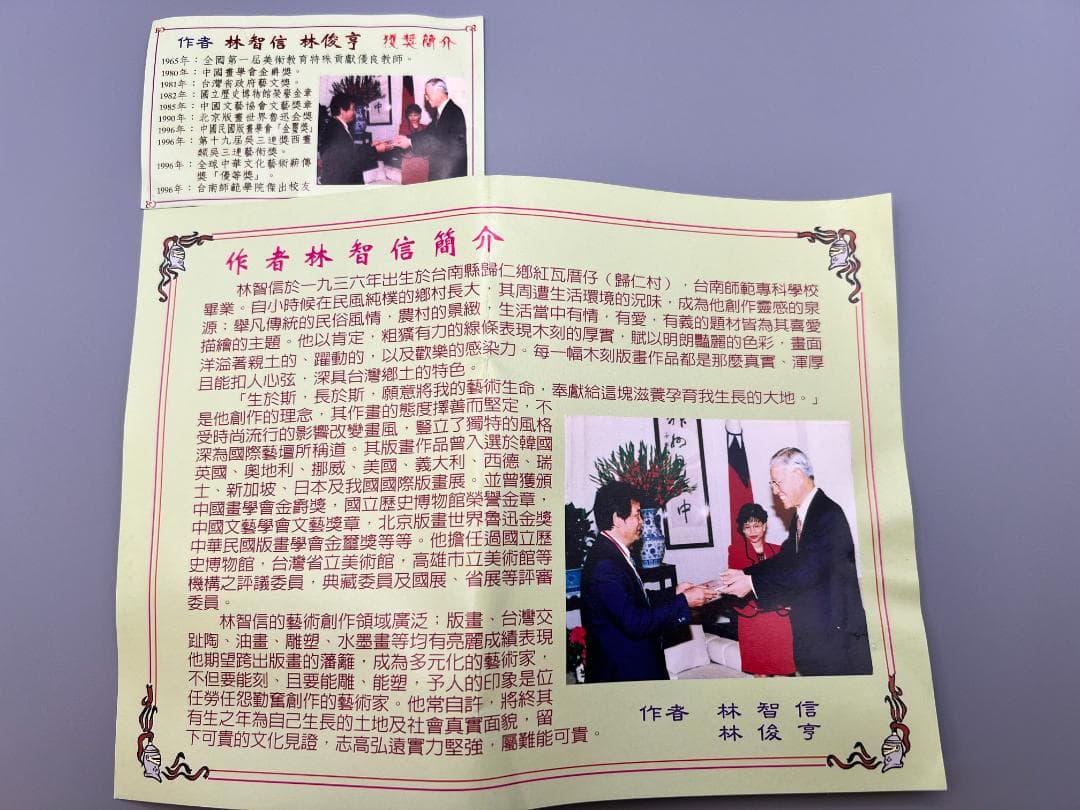 作者 林智信 林俊亨 獲獎簡介
1965年：全國第一屆美術教育特殊貢獻優良教師。
1980年：中國畫學會金爵獎。
1981年：台灣省政府藝文獎。
1982年：國立歷史博物館榮譽金章
1985年：中國文藝協會文藝獎章
1990年：北京版畫世界魯迅金獎
1996年：中國民國版畫學會「金璽獎」
1996年：第十九屆吳三連獎西畫
類吳三連藝術獎。
1996年：全球中華文化藝術薪傳
獎「優等獎」。
1996年：台南師範學院傑出校友
作者林智信簡介
林智信於一九三六年出生於台南縣歸仁鄉紅瓦厝仔（歸仁村），台南師範專科學校
畢業。自小時候在民風純樸的鄉村長大，其周遭生活環境的況味，成為他創作靈感的泉
源；舉凡傳統的民俗風情，農村的景緻，生活當中有情，有愛，有義的題材皆為其喜愛
描繪的主題。他以肯定，粗獷有力的線條表現木刻的厚實，賦以明朗豔麗的色彩，畫面
洋溢著親土的、躍動的，以及歡樂的感染力。每一幅木刻版畫作品都是那麼真實、渾厚
且能扣人心弦，深具台灣鄉土的特色。
「生於斯，長於斯，願意將我的藝術生命，奉獻給這塊滋養孕育我生長的大地。」
是他創作的理念，其作畫的態度擇善而堅定，不
受時尚流行的影響改變畫風，豎立了獨特的風格
深為國際藝壇所稱道。其版畫作品曾入選於韓國
英國、奧地利、挪威、美國、義大利、西德、瑞
士、新加坡、日本及我國國際版畫展。並曾獲頒
中國畫學會金爵獎，國立歷史博物館榮譽金章，
中國文藝學會文藝獎章，北京版畫世界魯迅金獎
中華民國版畫學會金璽獎等等。他擔任過國立歷
史博物館，台灣省立美術館，高雄市立美術館等
機構之評議委員，典藏委員及國展、省展等評審
委員。
林智信的藝術創作領域廣泛；版畫、台灣交
趾陶、油畫、雕塑、水墨畫等均有亮麗成績表現
他期望跨出版畫的藩籬，成為多元化的藝術家，
不但要能刻、且要能雕、能塑，予人的印象是位
任勞任怨勤奮創作的藝術家。他常自許，將終其
有生之年為自己生長的土地及社會真實面貌，留
下可貴的文化見證，志高弘遠實力堅強，屬難能可貴。
中
作者 林智信
林俊亨